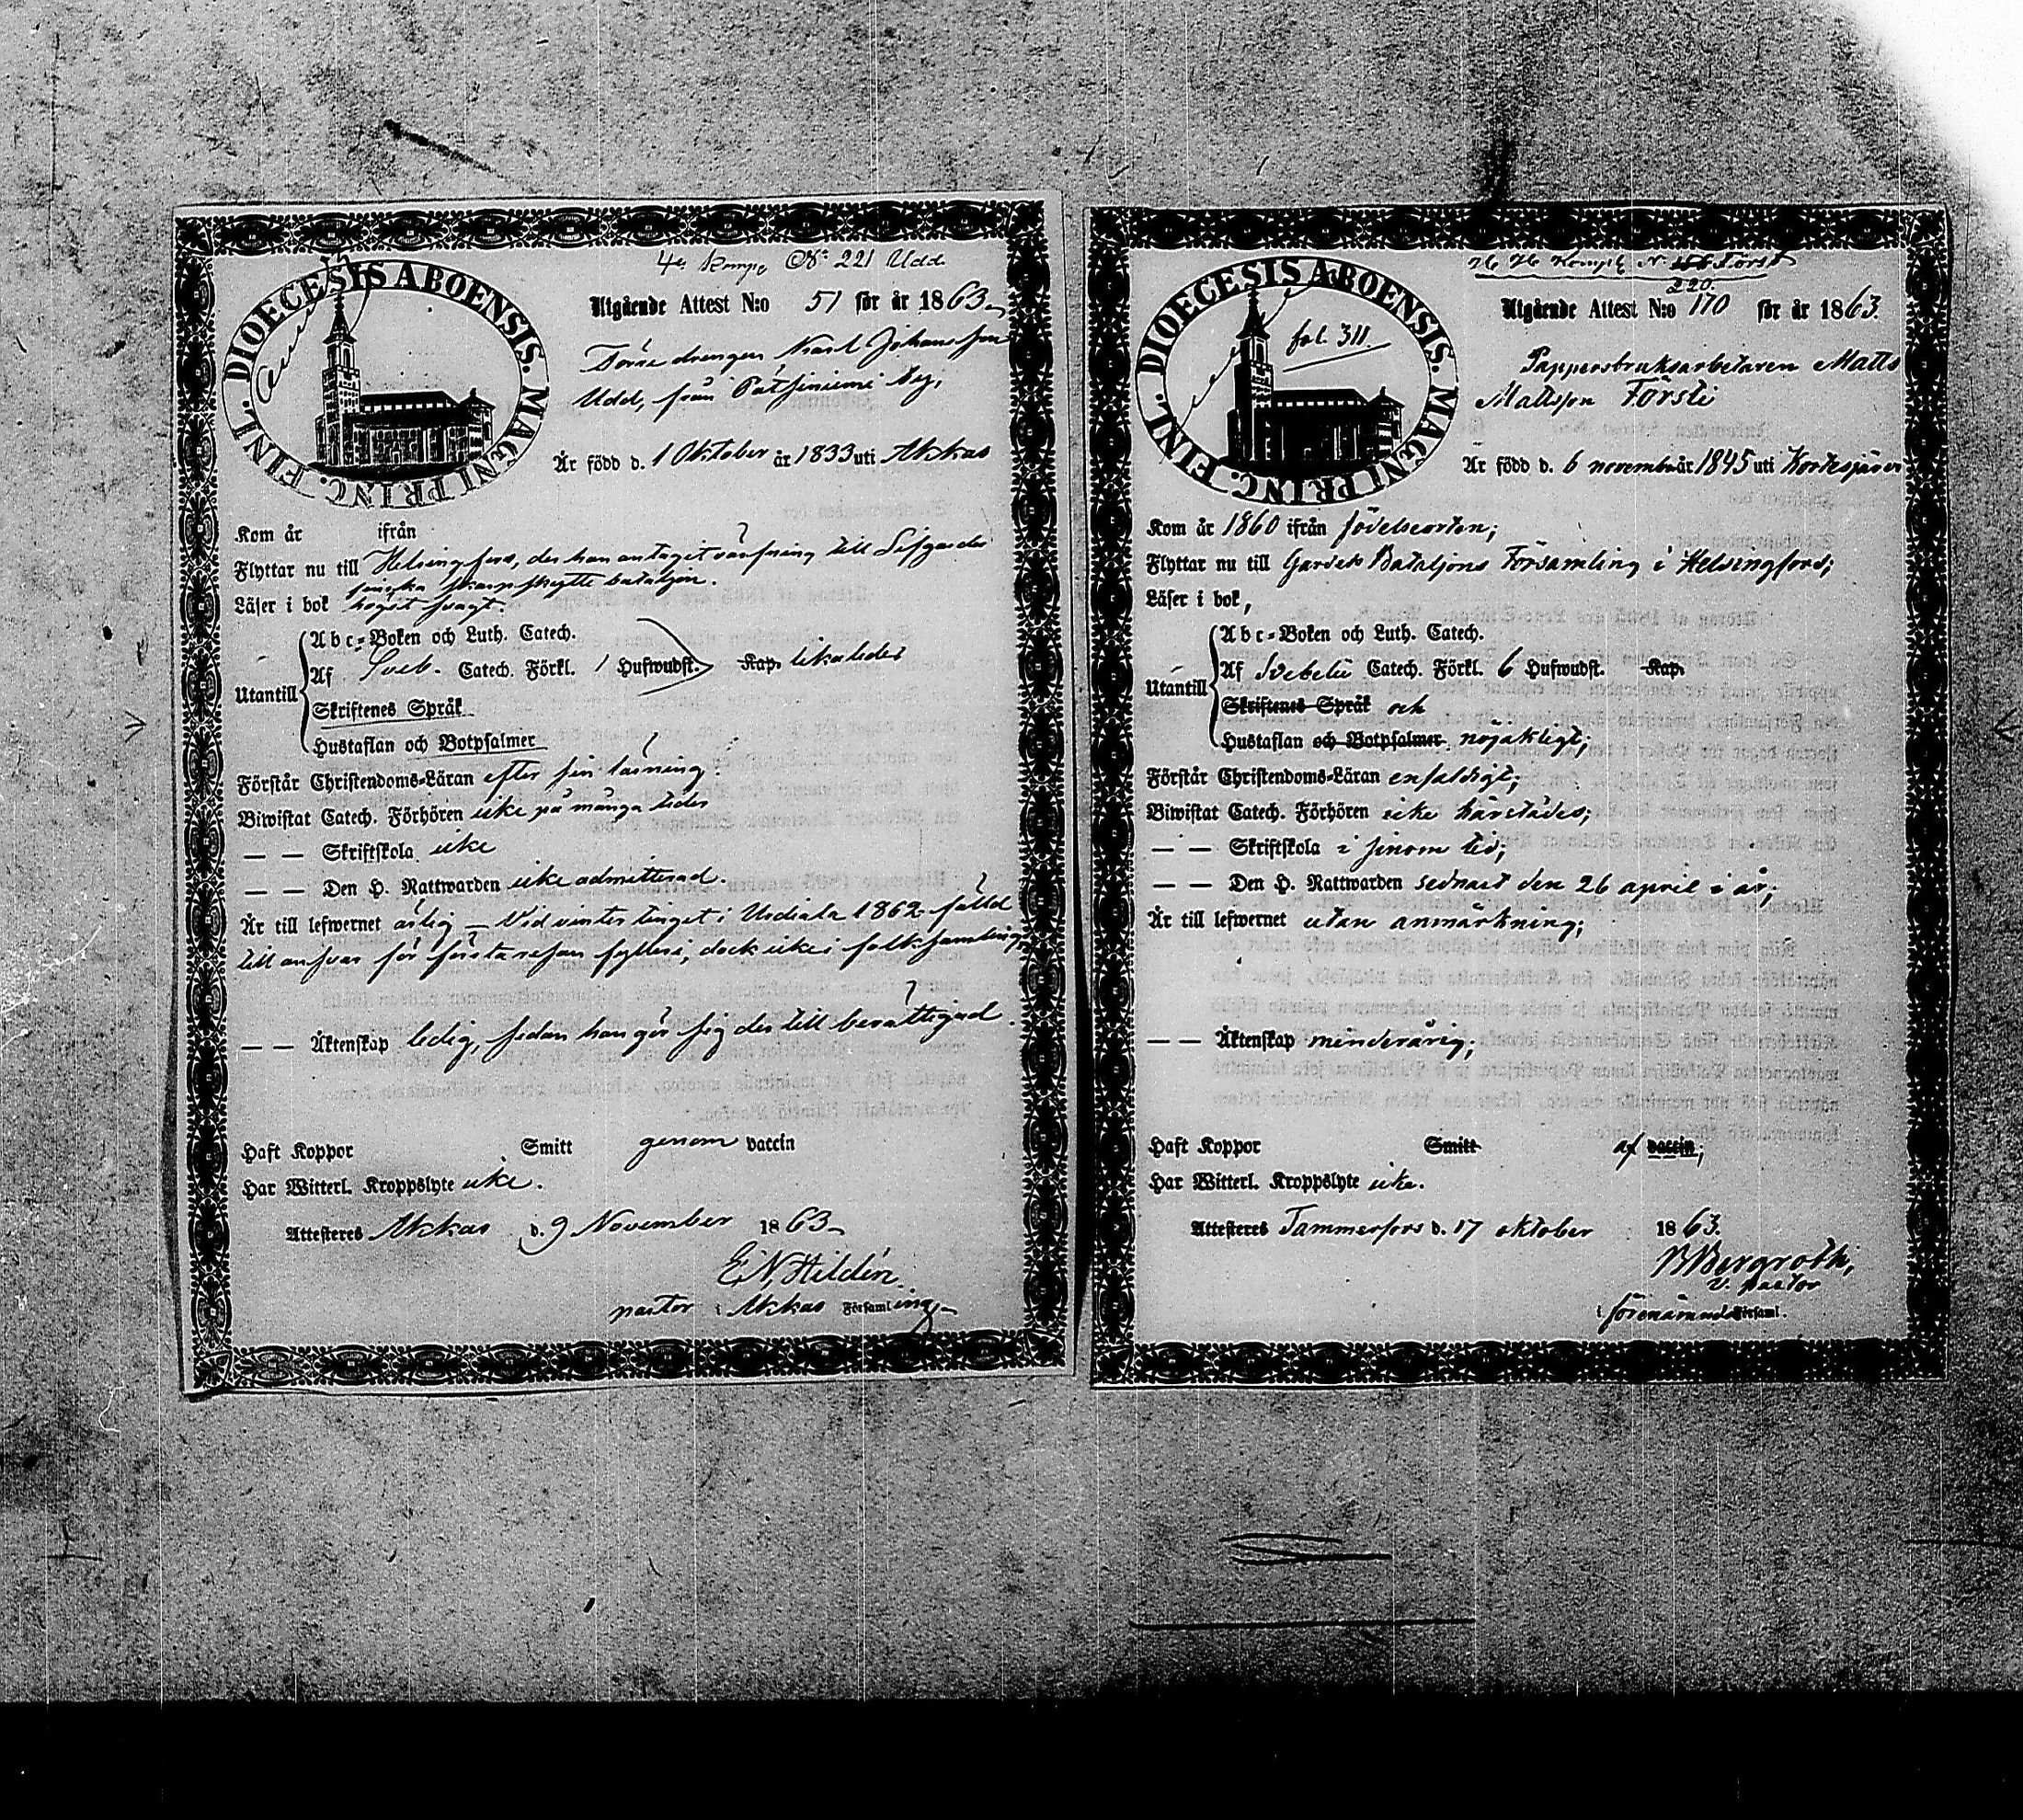 4e Komp. No 221 Udd
DIOECESIS ABOENSIS. MAGNI PRINC. FINL.
Utgående Attest N:o 51 för år 1863
drengen Karl Johansson
Udd, från
Är född d. 1 Oktober år 1833 uti Akkas
Kom år ifrån
Flyttar nu till Helsingfors, der han antagit värfning till Lifgardes
finska skarpskytte bataljon.
Läser i bok högst svagt.
Abc-Boken och Luth. Catech.
Utantill Af Sveb. Catech. Förkl. 1 Hufwudst. Kap. likaledes
Skriftenes Språk
Hustaflan och Botpsalmer
Förstår Christendoms-Läran efter sin läsning.
Biwistat Catech. Förhören icke på många tider
— — Skriftskola icke
— — Den H. Nattwarden icke admitterad.
Är till lefwernet ärlig — Vid vintertinget i Urdiala 1862 fälld
till ansvar för första resan fylleri, dock icke i folksamling,
— — Äktenskap ledig, sedan han gör sig der till berättigad.
Haft Koppor Smitt genom vaccin
Har Witterl. Kroppslyte icke.
Attesteres Akkas d. 9 November 1863
E.N. Hildén.
pastor i Akkas Församling
Kompk N 166 Först
220.
DIOECESIS ABOENSIS. MAGNI PRINC. FINL.
fol. 311
Utgående Attest N:o 170 för år 1863.
Pappersbruksarbetaren Matts
Mattsson Försti
Är född d. 6 november år 1845 uti Kortesjärvi
Kom år 1860 ifrån födelseorten;
Flyttar nu till Gardets Bataljons Församling i Helsingfors;
Läser i bok,
Abc-Boken och Luth. Catech.
Utantill Af Svebelii Catech. Förkl. 6 Hufwudst. Kap.
Skriftenes Språk och
Hustaflan och Botpsalmer nöjaktigt;
Förstår Christendoms-Läran enfaldigt;
Biwistat Catech. Förhören icke härstädes;
— — Skriftskola i sinom tid;
— — Den H. Nattwarden sednast den 26 april i år;
Är till lefwernet utan anmärkning;
— — Äktenskap minderårig;
Haft Koppor Smitt af vaccin;
Har Witterl. Kroppslyte icke.
Attesteres Tammerfors d. 17 oktober 1863.
Bergroth,
v. pastor
i förenämnde Församl.